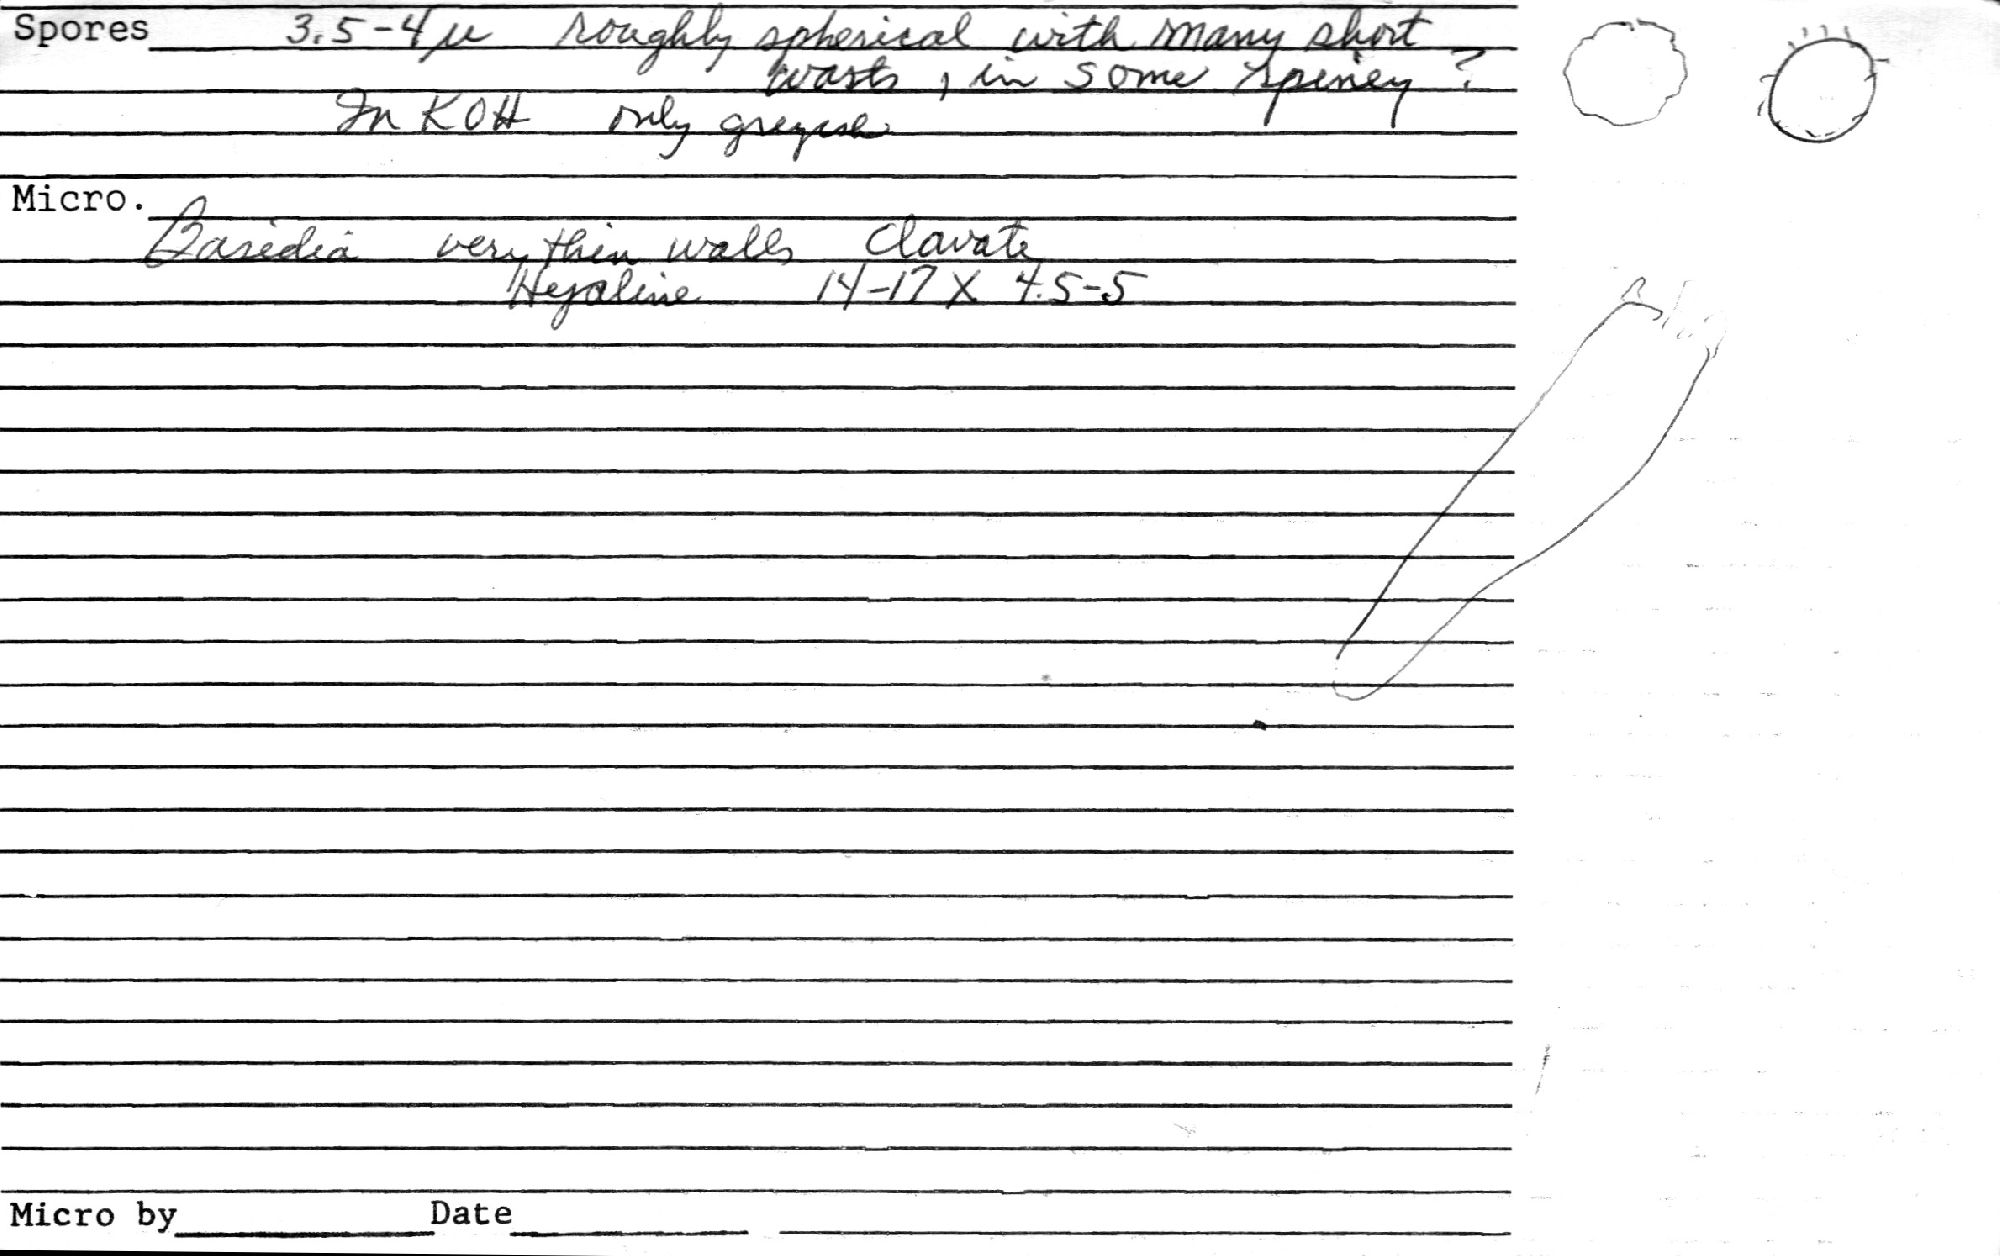 Spores 3.5-4µ roughly spherical with many short
warts, in some spiney ?
In KOH only greyish
Micro.
Basidia very thin walls Clavate
Hyaline 14-17 X 4.5-5
Micro by Date